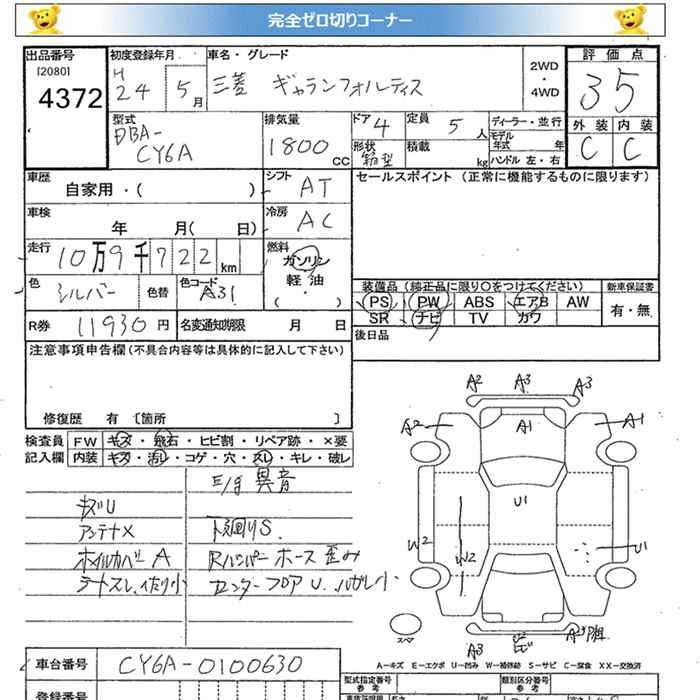 完全ゼロ切りコーナー
出品番号
[2080]
4372
初度登録年月
H 24 5 月
車名・グレード
三菱 ギャランフォルティス
2WD
・
4WD
評価点
35
外装 内装
C C
型式
DBA-
CY6A
排気量
1800 cc
ドア 4
形状 箱型
定員 5 人
積載 kg
ディーラー・並行
モデル年式 年
ハンドル 左・右
車歴
自家用・( )
シフト AT
セールスポイント (正常に機能するものに限ります)
車検
年 月( 日)
冷房 AC
走行
10万9千722km
燃料
ガソリン
軽油
・
( )
色
シルバー
色替
色コード
A31
装備品 (純正品に限り○をつけてください)
新車保証書
PS PW ABS エアB AW
有・無
SR ナビ TV カワ
R券 11930 円
名変通知期限 月 日
後日品
注意事項申告欄 (不具合内容等は具体的に記入して下さい)
修復歴 有 [箇所 ]
検査員
記入欄
FW キズ・飛石・ヒビ割・リペア跡・×要
内装 キズ・汚レ・コゲ・穴・スレ・キレ・破レ
E/g 異音
キズU
アンテナX
下廻りS
ホイルカバー A
Rバンパー ホース 歪み
シートスレ、
センターフロア U、
A2 A3 A3
A2 A1 A1
U1
W2 W2 U1
スペア
A3 U2
A-キズ E-エクボ U-凹み W-補修跡 S-サビ C-腐食 XX-交換済
車台番号 CY6A-0100630
登録番号
型式指定番号
参考
類別区分番号
参考